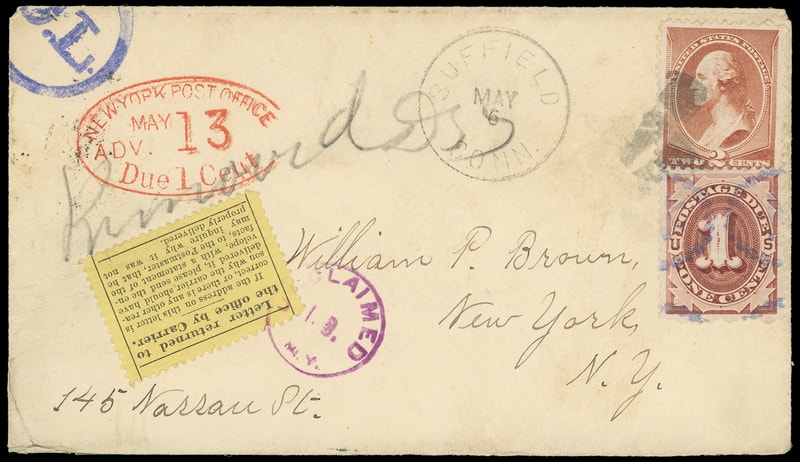 D.L.
NEW YORK POST OFFICE
MAY 13
ADV.
Due 1 Cent
SUFFIELD
MAY
6
CONN.
UNITED STATES POSTAGE
TWO 2 CENTS
POSTAGE DUE
1
ONE CENT
U S
Letter returned to
the office by Carrier.
If the address on this letter is
correct, or there is any other rea-
son why the carrier should have
delivered it, please send the en-
velope, with a statement of the
facts, to the Postmaster, that he
may inquire why it was not
properly delivered.
CLAIMED
N.Y.
William P. Brown,
New York,
N.Y.
145 Nassau St.